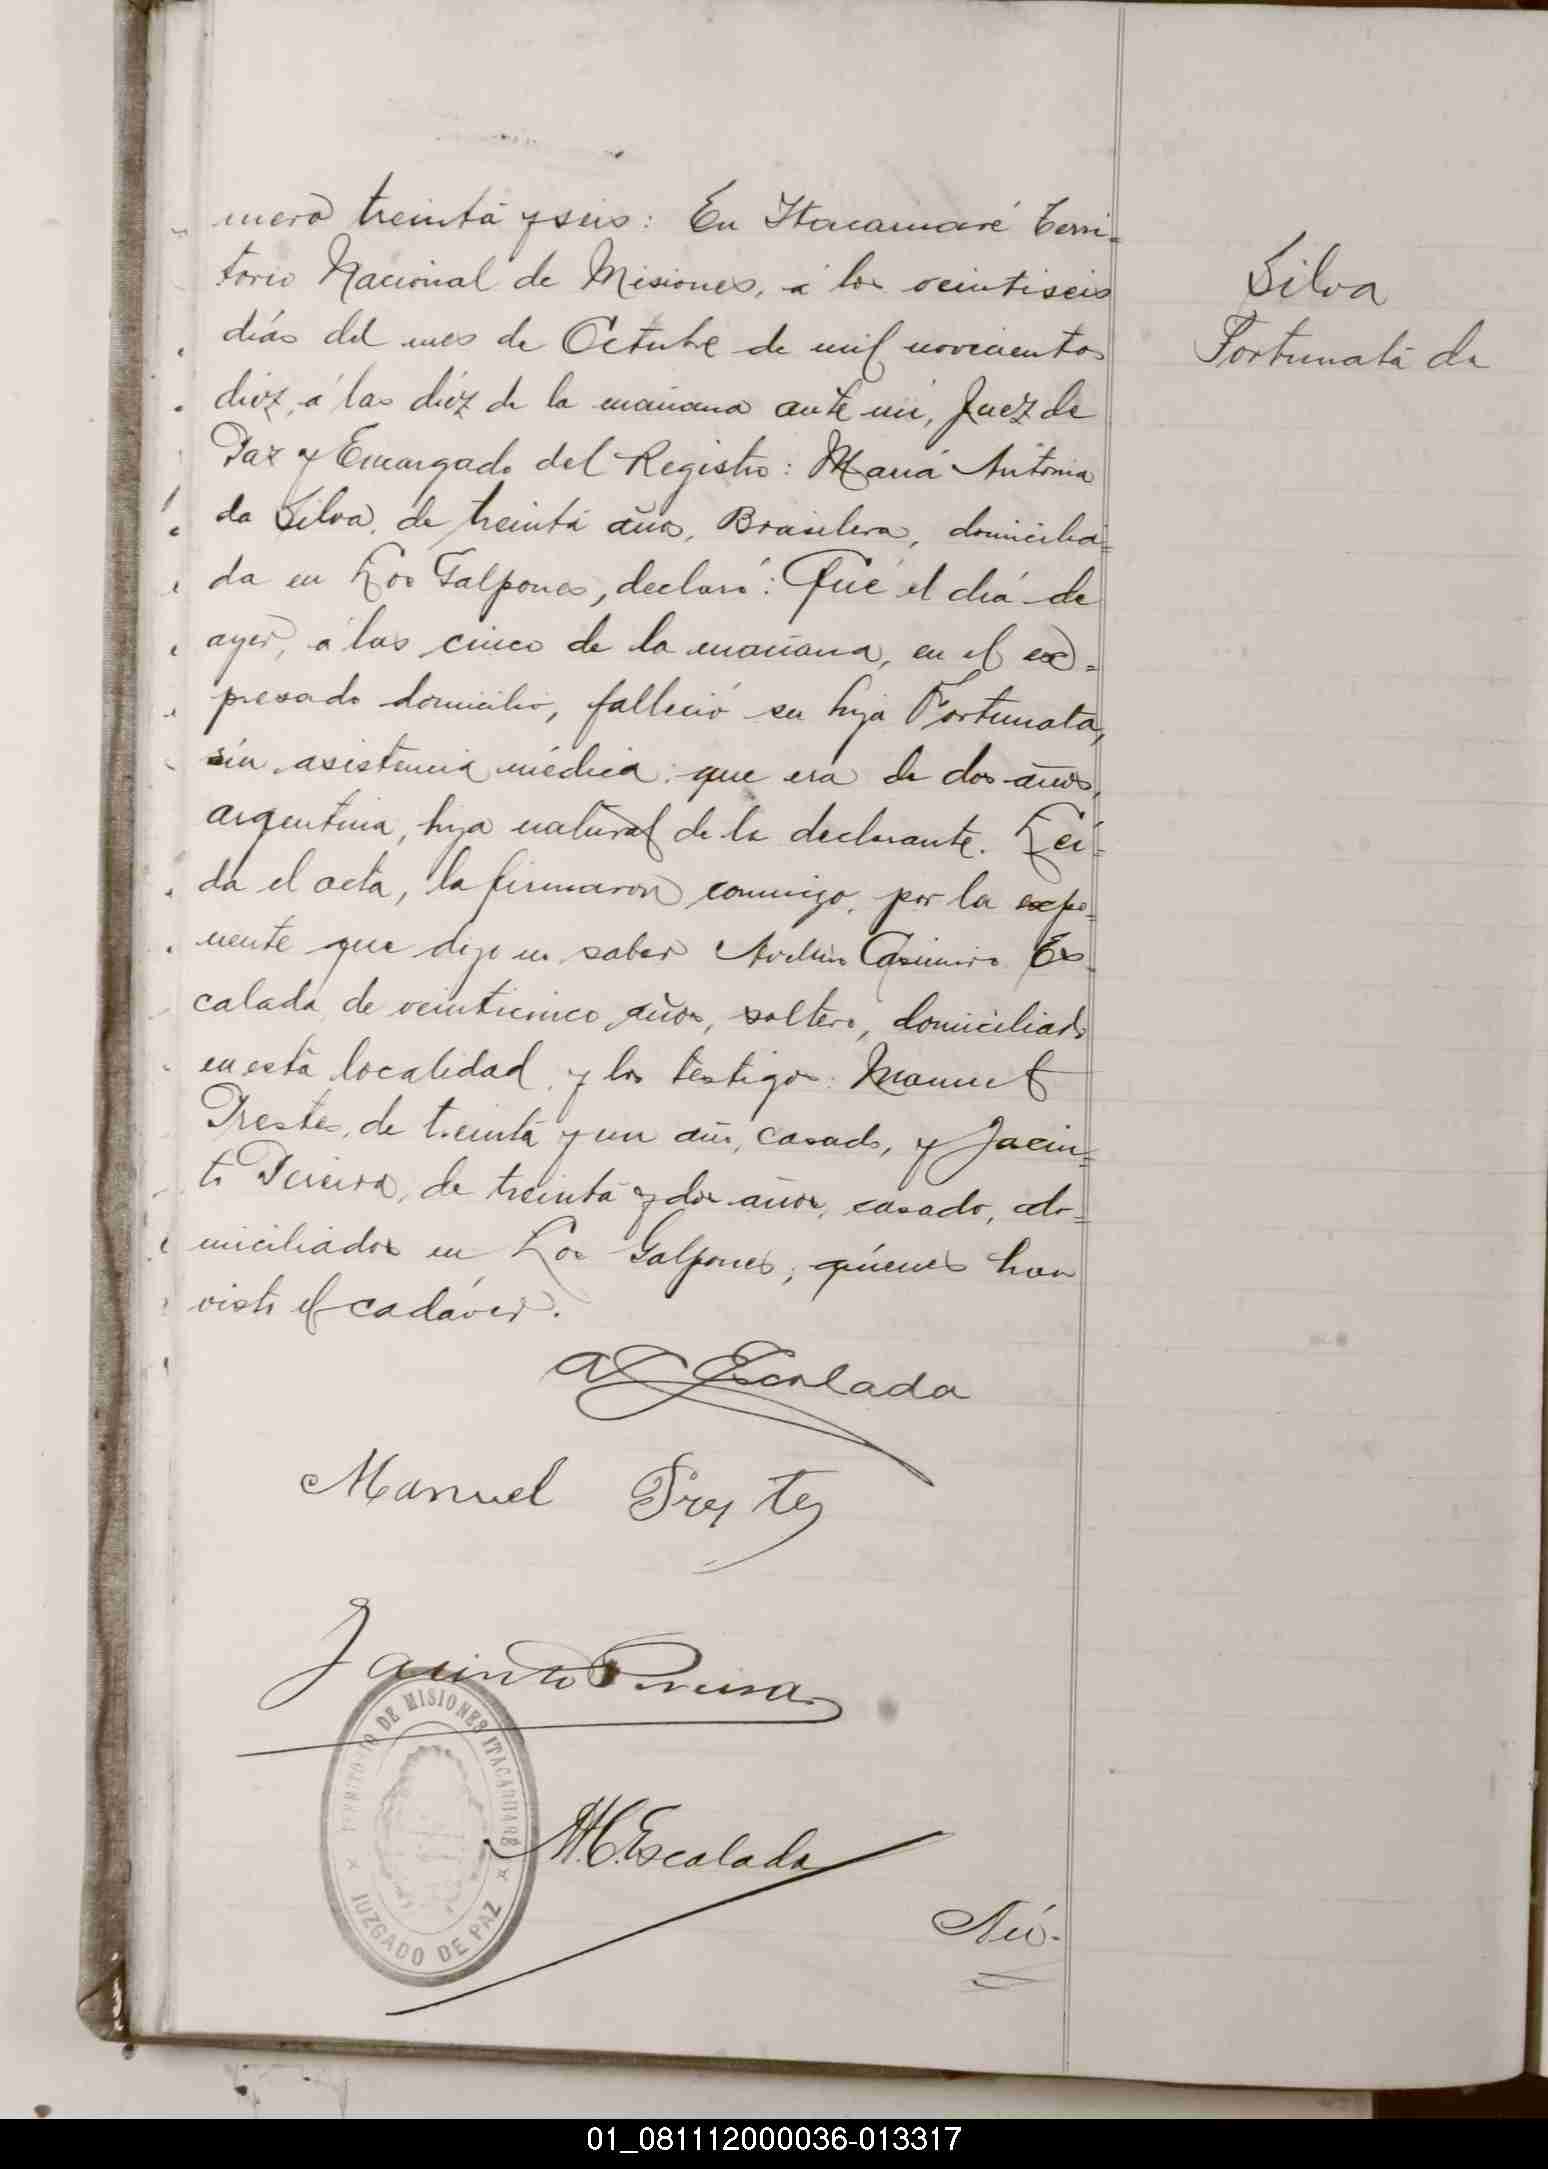 mero treinta y seis: En Itacaruaré Terri=
torio Nacional de Misiones, á los veintiseis
días del mes de Octubre de mil novecientos
diez, á las diéz de la mañana ante mí, Juez de
Paz y Encargado del Registro: María Antonia
da Silva, de treinta años, Brasilera, domicilia=
da en Los Galpones, declaró: Qué el día de
ayer, á las cinco de la mañana, en el ex=
presado domicilio, falleció su hija Fortunata,
sin asistencia médica: que era de dos años,
argentina, hija natural de la declarante. Leí=
da el acta, la firmaron conmigo, por la expo=
nente que dijo no saber Avelino Casimiro Es
calada de veinticinco años, soltero, domiciliado
en esta localidad y los testigos: Manuel
Prestes, de treinta y un años, casado, y Jacin=
to Pereira, de treinta y dos años, casado, do=
miciliados en Los Galpones, quienes han
visto el cadáver.
Silva
Fortunata da
A C Escalada
Manuel Prestes
Jacinto Pereira
TERRITORIO DE MISIONES ITACARUARÉ
JUZGADO DE PAZ
M.C. Escalada
Nú-
01_081112000036-013317